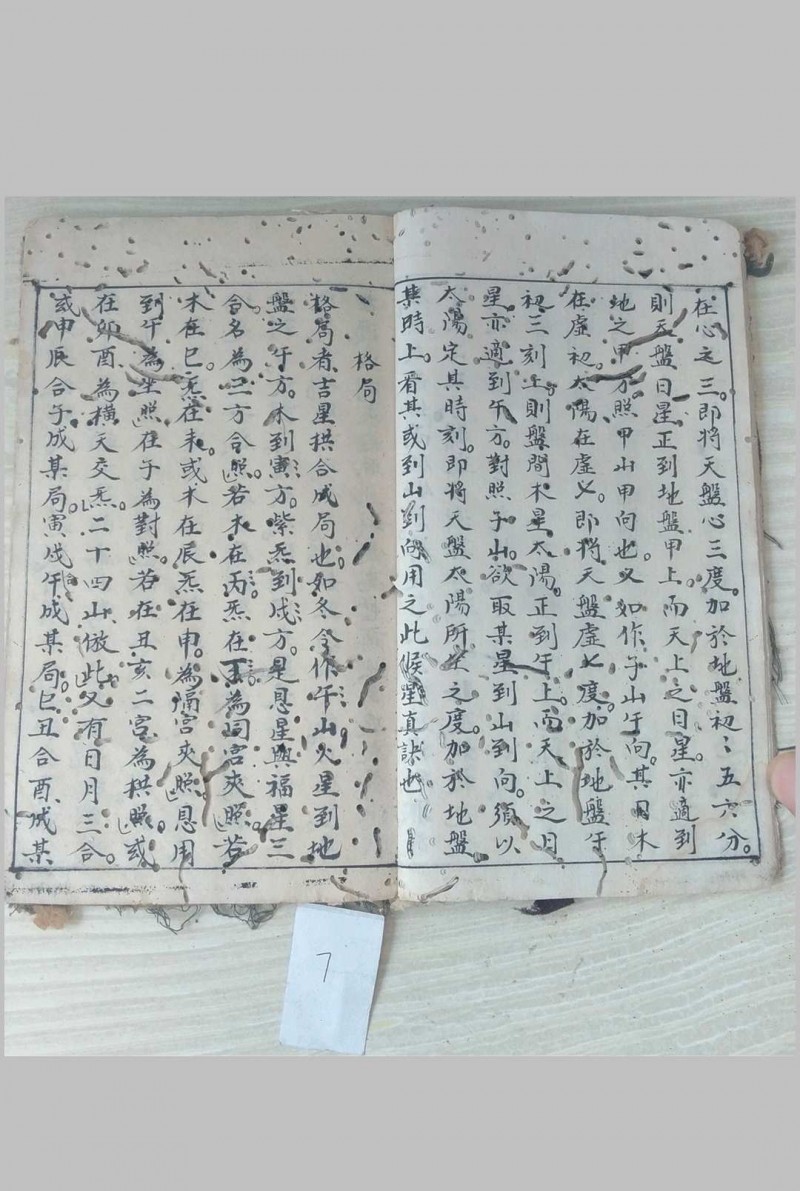 在心之三。即將天盤心三度。加於地盤初初五六分。
則天盤日星。正到地盤甲上。而天上之日星。亦適到
地之甲方。照甲山甲向也。又如作子山午向。其日木
在虛初。太陽在虛七。即將天盤虛七度。加於地盤午
初三刻上。則盤間木星太陽。正到午上。而天上之日
星亦適到午方。對照子山。欲取某星到山到向。須以
太陽定其時刻。即將天盤太陽所坐之度。加於地盤
某時上。看其或到山到向用之此候星真訣也
格局
格局者吉星拱合成局也。如冬令作午山火星到地
盤之午方。木到寅方。紫炁到戌方。是恩星與福星三
合。名為三方合照。若木在丙。炁在丁。為同宮夾照。若
木在巳。炁在未。或木在辰。炁在申。為隔宮夾照。恩用
到午為坐照。在子為對照。若在丑亥二宮。為拱照。或
在卯酉為橫天交炁。二十四山倣此。又有日月三合。
或申辰合子成某局。寅戌午成某局。巳丑合酉成某
7